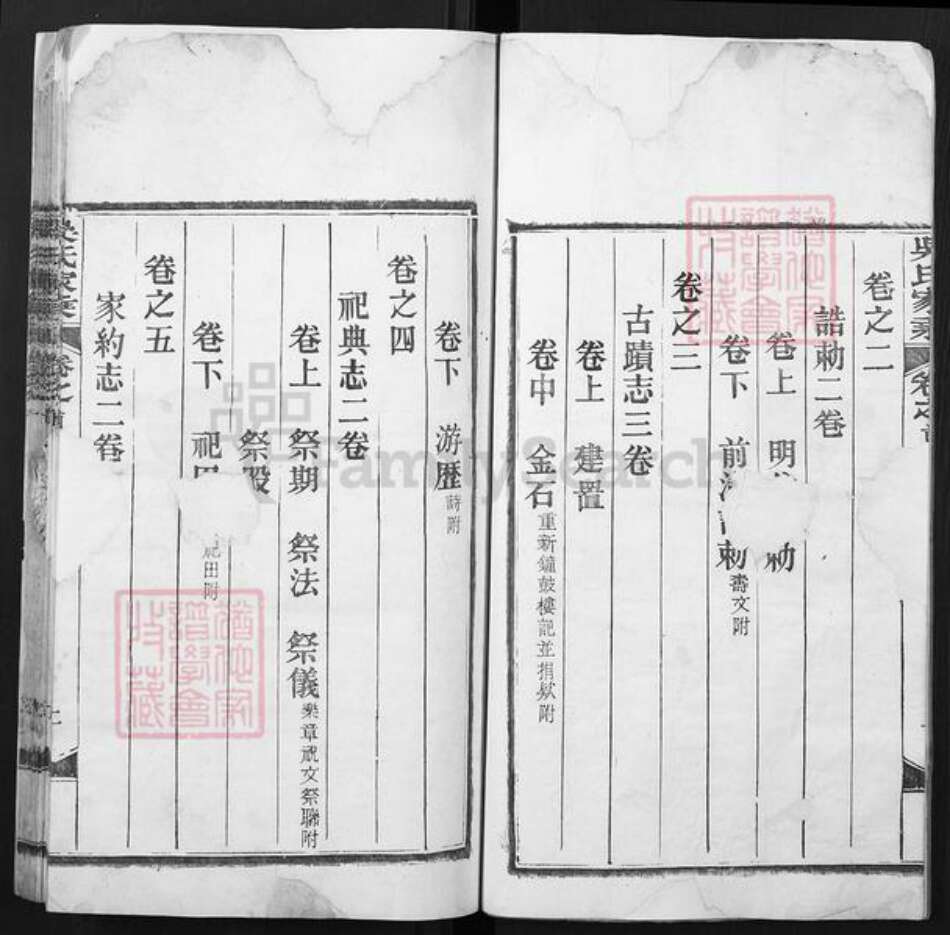 卷之二
誥勅二卷
卷上 明 勅
卷下 前 勅 壽文附
卷之三
古蹟志三卷
卷上 建置
卷中 金石 重新鐘鼓樓記並捐款附
卷下 游歷 詩附
卷之四
祀典志二卷
卷上 祭期 祭法 祭儀 樂章祝文祭聯附
祭殿
卷下 祀田 祀田附
卷之五
家約志二卷
吳氏家乘
卷之首
FamilySearch